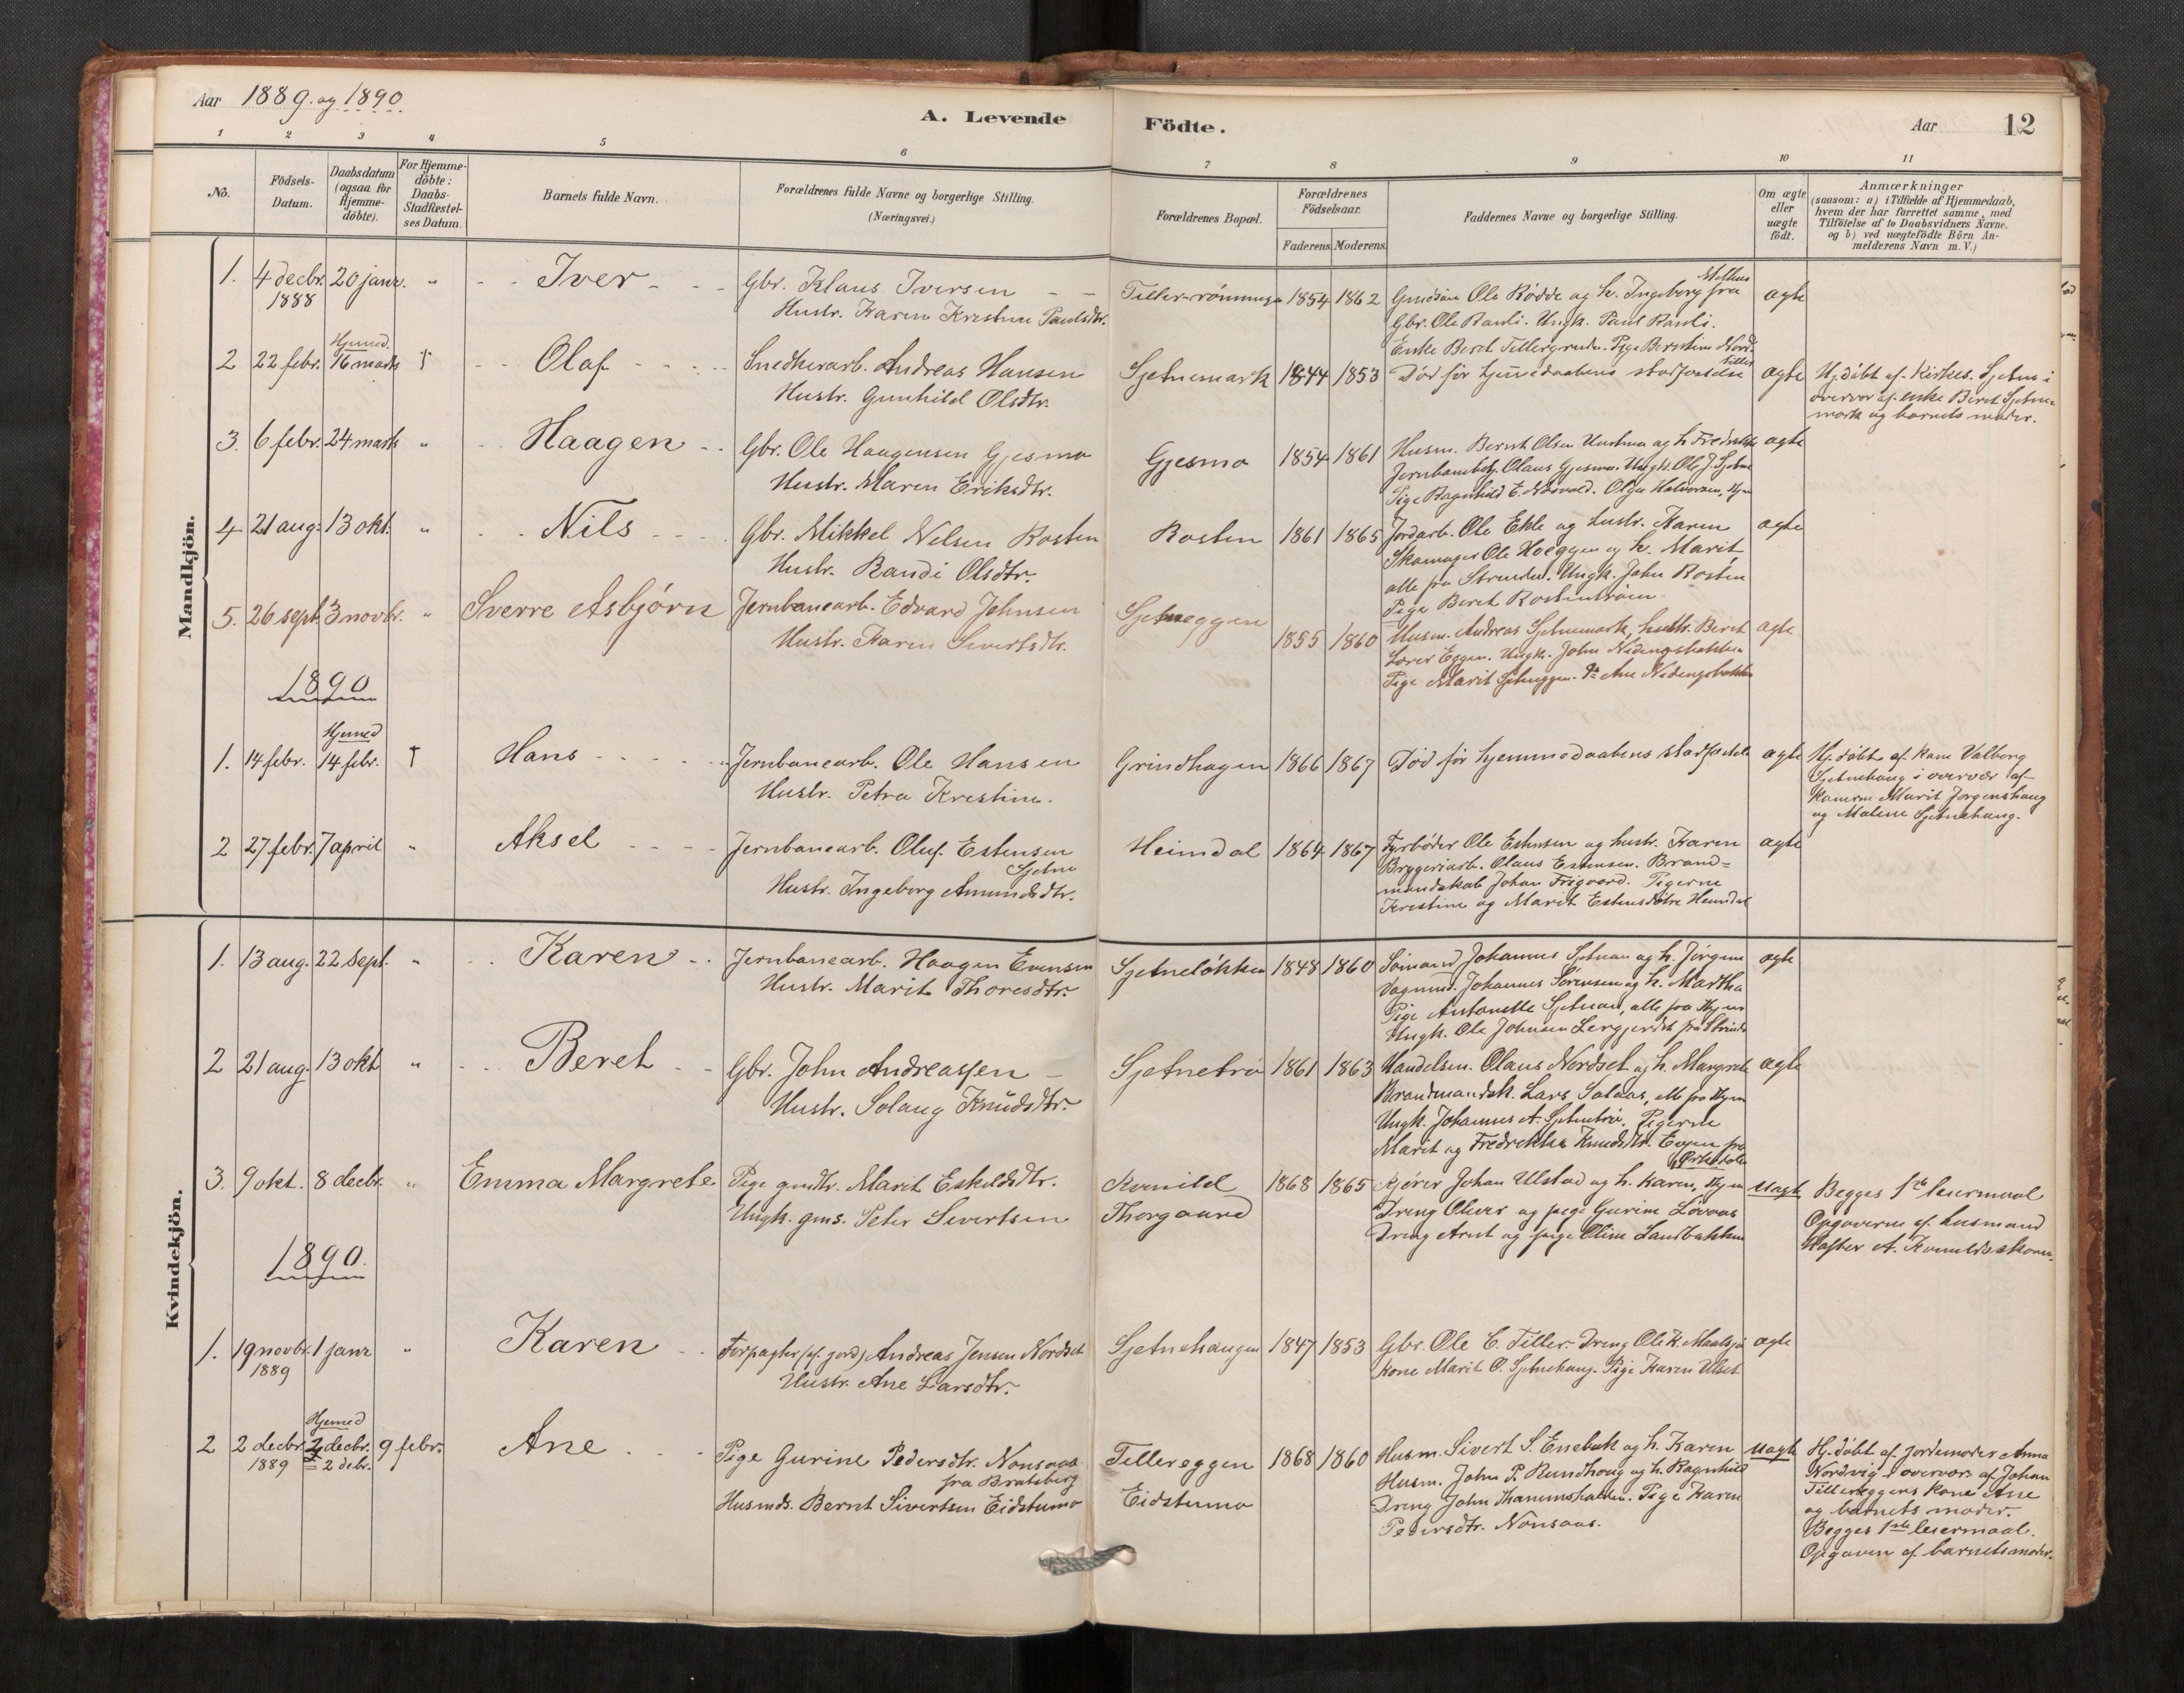 Aar 1889. og 1890.
A. Levende Födte.
Aar 12
1 2 3 4 5 6 7 8 9 10 11
No.
Födsels-Datum.
Daabsdatum (ogsaa for Hjemme-döbte).
For Hjemme-döbte: Daabs-Stadfæstel-ses Datum.
Barnets fulde Navn.
Forældrenes fulde Navne og borgerlige Stilling. (Næringsvei.)
Forældrenes Bopæl.
Forældrenes Födselsaar.
Faderens. Moderens.
Faddernes Navne og borgerlige Stilling.
Om ægte eller uægte födt.
Anmærkninger
(saasom: a) i Tilfælde af Hjemmedaab,
hvem der har forrettet samme, med
Tilföielse af to Daabsvidners Navne.
og b) ved uægtefödte Börn An-
melderens Navn m. V.)
Mandkjön.
1. 4 decbr. 1888 20 janr. " Iver
Gbr. Klaus Iversen
Hustr. Karen Kristine Paulsdtr.
Tiller-rönningen 1854 1862
Gmdsön Ole Rödde og h. Ingeborg fra Melhus
Gbr. Ole Rauli. Ungk. Paul Rauli.
Enke Beret Tillergrinden. Pige Berntine Nord-Tiller
ægte
2 22 febr. Hjemmed. 16 marts † Olaf
Snedkerarb. Andreas Hansen
Hustr. Gunhild Olsdtr.
Sjetnemark 1844 1853
Död för hjemmedaabens stadfæstelse
ægte
Hj. döbt af Kirkes. Sjetne i
overvær af enke Beret Sjetne-
mark og barnets moder.
3. 6 febr. 24 marts " Haagen
Gbr. Ole Haagensen Gjesmo
Hustr. Maren Eriksdtr.
Gjesmo 1854 1861
Husm. Bernt Olsen Uustmo og h. Fredrikke
Jernbanebetj. Olaus Gjesmo. Ungk. Ole J. Sjetne
Pige Ragnhild E. Næsvold. Olga Halvorsen,
ægte
4 21 aug. 13 okt. " Nils
Gbr. Mikkel Nilsen Rosten
Hustr. Randi Olsdtr.
Rosten 1861 1865
Jordarb. Ole Ekle og hustr. Karen
Skomager Ole Hoeggen og h. Marit
alle fra Strinden. Ungk. John Rosten
Pige Beret Rostentröen
ægte
5. 26 sept. 3 novbr. " Sverre Asbjörn
Jernbanearb. Edvard Johnsen
Hustr. Karen Sivertsdtr.
Sjetneeggen 1855 1860
Husm. Andreas Sjetnemark, hustr. Beret
Lærer Eggen. Ungk. John Nidengsbakken
Pige Marit Sjetneggen. Do Ane Nidengsbakken
ægte
1890
1. 14 febr. Hjemmed 14 febr. † Hans
Jernbanearb. Ole Hansen
Hustr. Petra Kristine.
Grindhagen 1866 1867
Död för hjemmedaabens stadfæstelse
ægte
Hj. döbt af Kone Valborg
Sjetnehaug i overvær af
konerne Marit Jörgenshaug
og Malene Sjetnehaug.
2 27 febr. 7 april " Aksel
Jernbanearb. Oluf Estensen
Sjetne
Hustr. Ingeborg Amundsdtr.
Heimdal 1864 1867
Fyrböder Ole Estensen og hustr. Karen
Bryggeriarb. Olaus Estensen. Brand-
mandskab Johan Frigaard. Pigerne
Kristine og Marit Estensdötre Heimdal
ægte
Kvindekjön.
1. 13 aug. 22 sept. " Karen
Jernbanearb. Haagen Evensen
Hustr. Marit Thoresdtr.
Sjetnelökken 1848 1860
Sömand Johannes Sjetnan og h. Jörgine
Vognmd. Johannes Sörensen og h. Martha
Pige Antonette Sjetnan, alle fra Byen
Ungk. Ole Johnsen Lergjerdet fra Strinda
ægte
2 21 aug. 13 okt " Beret
Gbr. John Andreassen
Hustr. Solaug Knudsdtr.
Sjetnetrö 1861 1863
Handelsm. Olaus Nordset og h. Margrete
Brandmandsk. Lars Solaas, alle fra Byen
Ungk. Johannes A. Sjetnetrö. Pigerne
Marit og Fredrikke Knudsdtr. Evjen fra
Orkedalen
ægte
3. 9 okt. 8 decbr. " Emma Margrete
Pige gmdtr. Marit Eskildsdtr.
Ungk. gms. Peter Sivertsen
Kvenild
Thorgaard
1868 1865
Kjörer Johan Ulstad og h. Karen, Byen
Dreng Oliver og pige Gurine Lövaas
Dreng Arnt og pige Oline Sandbakken
uægte
Begges 1ste leiermaal
Opgaverne af husmand
Kvenildsskoven.
1890.
1. 19 novbr. 1889 1 janr " Karen
Forpagter (af jord) Andreas Jensen Nordset
Hustr. Ane Larsdtr.
Sjetnehaugen 1847 1853
Gbr. Ole C. Tiller. Dreng Ole K. Maalsjö
Kone Marit O. Sjetnehaug. Pige Karen Ulset
ægte
2 2 decbr. 1889 Hjemmed 2 decbr. = 2 debr. 9 febr. Ane
Pige Gurine Pedersdtr. Nonsaas
fra Bratsberg
Husmds. Bernt Sivertsen Eidstumo
Tillereggen
Eidstumo
1868 1860
Husm. Sivert S. Enebak og h. Karen
Husm. John P. Rundhaug og h. Ragnhild
Dreng John Pige Karen
Pedersdtr. Nonsaas.
uægte
Hj. döbt af jordemoder Anna
Nordvig i overvær af Johan
Tillereggens kone Ane
og barnets moder.
Begges 1ste leiermaal.
Opgaven af barnets moder.